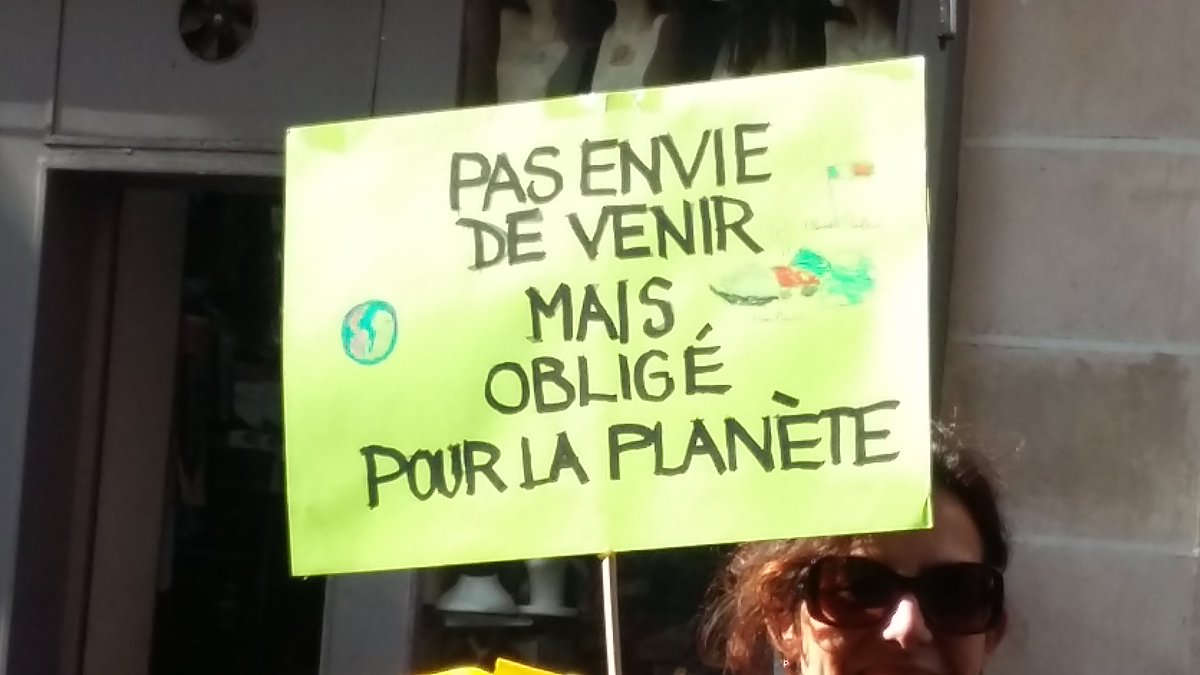 PAS ENVIE
DE VENIR
MAIS
OBLIGÉ
POUR LA PLANÈTE